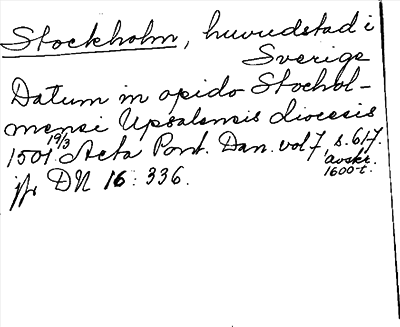 Stockholm, huvudstad i
Sverige
Datum in opido Stochol-
mensi Upsalensis diocesis
1501 19/3 Acta Pont. Dan. vol 7, s. 617.
avskr.
1600-t.
jfr DN 16:336.